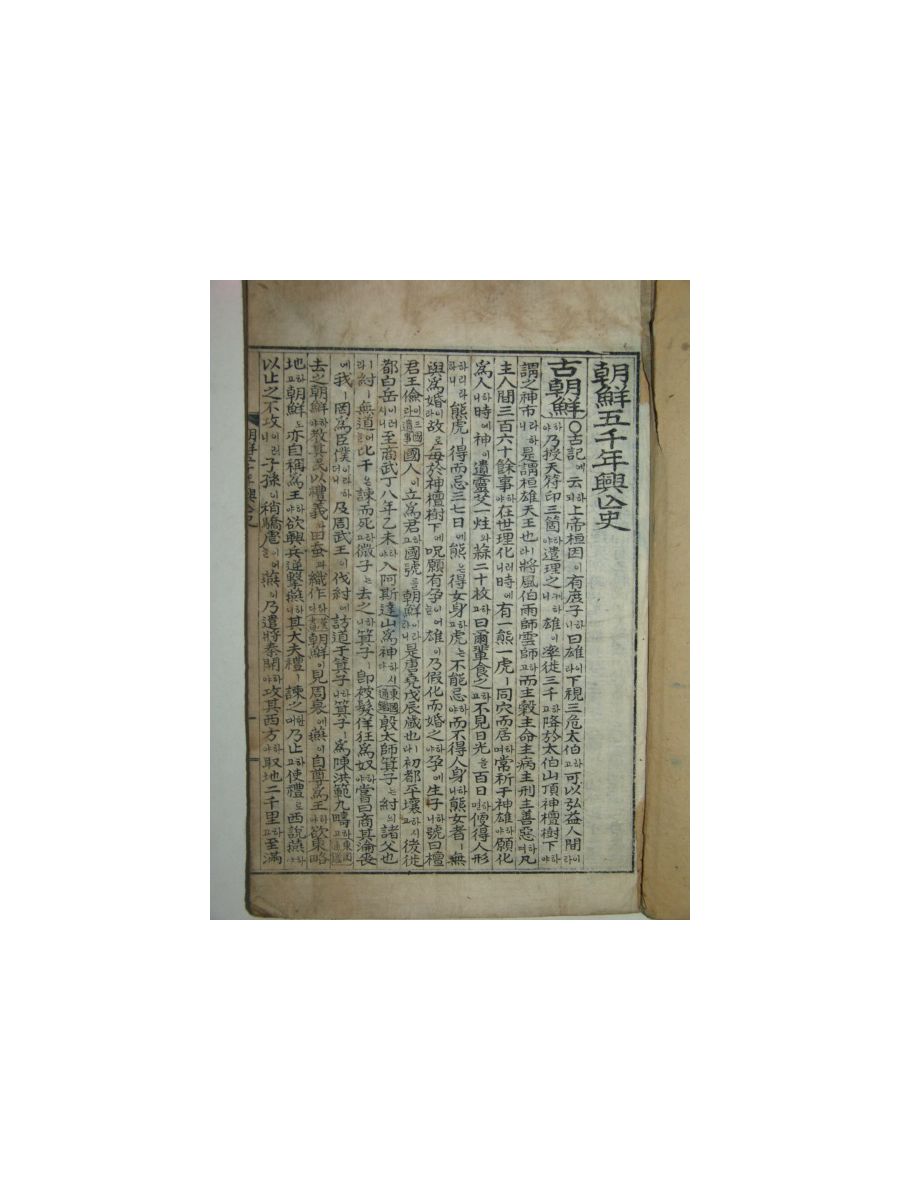 朝鮮五千年興亾史
古朝鮮○古記에云되하上帝桓因이有庶子니하曰雄라이下視三危太伯고하可以弘益人間라이
야하乃授天符印三箇야하遣理之니하雄이率徒三千고하降於太伯山頂神檀樹下야하
謂之神市니라하是謂桓雄天王也라將風伯雨師雲師고하而主穀主命主病主刑主善惡며하凡
主人間三百六十餘事야하在世理化니러時에有一熊一虎ㅣ同穴而居며하常祈于神雄야하願化
爲人니하時에神이遺靈艾一炷와蒜二十枚고하曰爾輩食之고하不見日光을百日면하便得人形
리라하니하熊虎ㅣ得而忌三七日에熊은得女身고하虎는不能忌야하而不得人身니하熊女者ㅣ無
與爲婚이라故로每於神檀樹下에呪願有孕이어늘雄이乃假化而婚之야하孕에生子니하號曰檀
君王儉라이三國遺事國人이立爲君고하國號를朝鮮이라하니是唐堯戊辰歲也라初都平壤시하고後徙
都白岳이러시니至商武丁八年乙未야하入阿斯達山爲神시하다東國通鑑殷太師箕子는紂의諸父也
라紂ㅣ無道어늘比干은諫而死고하微子는去之니하箕子ㅣ卽被髮佯狂爲奴야하嘗曰商其淪喪
에我ㅣ罔爲臣僕이라하더니及周武王이伐紂에訪道于箕子니하箕子ㅣ爲陳洪範九疇고하東國通鑑
去之朝鮮야하敎其民以禮義와田蚕과織作라하다漢書朝鮮이見周衰에燕이自尊爲王야하欲東略
地고하朝鮮도亦自稱爲王야하欲興兵逆擊燕니하其大夫禮ㅣ諫之어한대乃止고하使禮로西說燕야하
以止之不攻이러니子孫이稍驕虐이어늘燕이乃遣將秦開야하攻其西方야하取地二千里고하至滿
朝鮮五千年興亾史